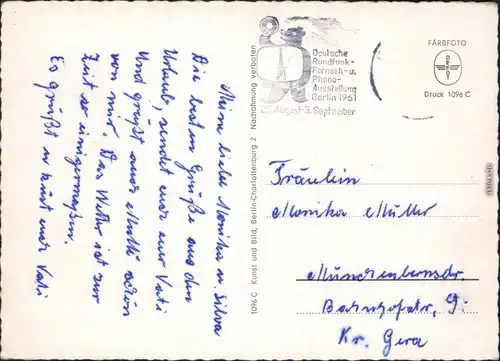 Meine liebe Monika u. Silva
Die besten Grüße aus dem
Urlaub, sendet euch euer Vati
Und grüßt eure Mutti schön
von mir. Das Wetter ist zur
Zeit so einigermaßen.
Es grüßt u. küsst euer Vati
1096 C Kunst und Bild, Berlin-Charlottenburg 2 Nachahmung verboten
Deutsche
Rundfunk-
Fernseh- u.
Phono-
Ausstellung
Berlin 1961
25. August-3. September
FARBFOTO
Druck 1096 C
Fräulein
Monika Müller
Münchenbernsdr.
Bahnhofstr. 9.
Kr. Gera